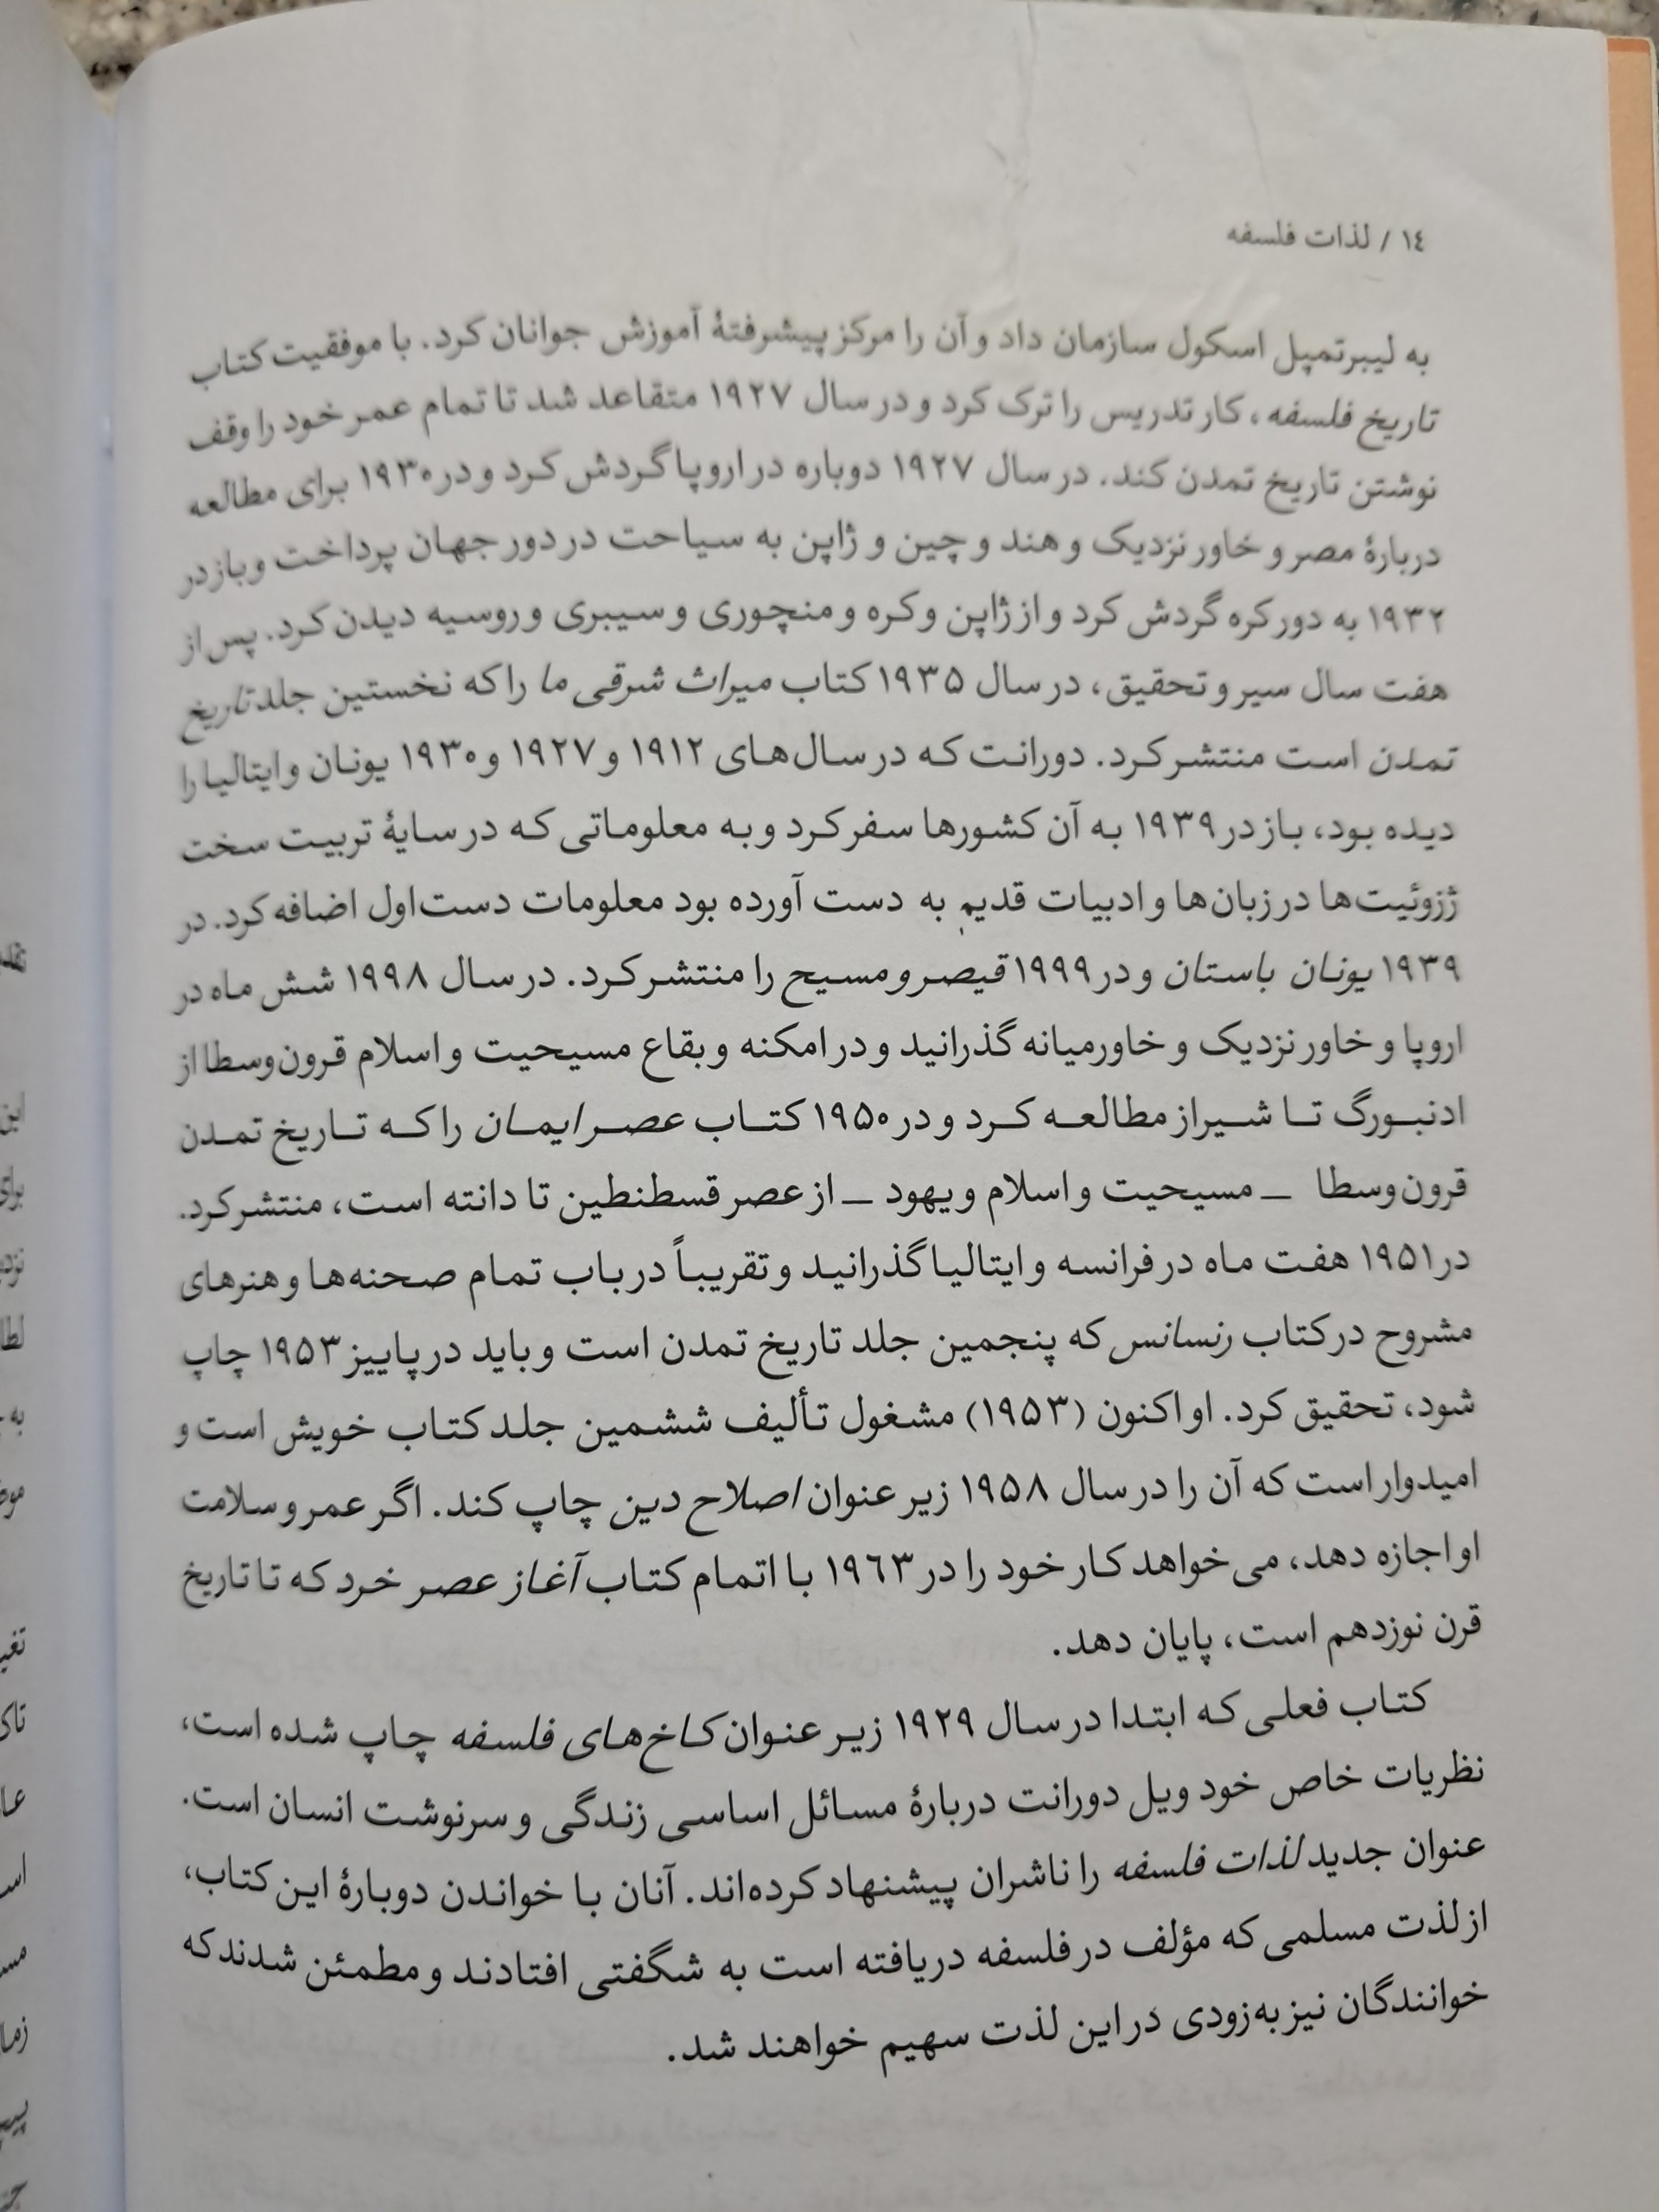 ۱٤ / لذات فلسفه
به لیبرتمپل اسکول سازمان داد و آن را مرکز پیشرفتهٔ آموزش جوانان کرد. با موفقیت کتاب
تاریخ فلسفه، کار تدریس را ترک کرد و در سال ۱۹۲۷ متقاعد شد تا تمام عمر خود را وقف
نوشتن تاریخ تمدن کند. در سال ۱۹۲۷ دوباره در اروپا گردش کرد و در ۱۹۳۰ برای مطالعه
دربارهٔ مصر و خاور نزدیک و هند و چین و ژاپن به سیاحت در دور جهان پرداخت و باز در
۱۹۳۲ به دور کره گردش کرد و از ژاپن و کره و منچوری و سیبری و روسیه دیدن کرد. پس از
هفت سال سیر و تحقیق، در سال ۱۹۳۵ کتاب میراث شرقی ما را که نخستین جلد تاریخ
تمدن است منتشر کرد. دورانت که در سال‌های ۱۹۱۲ و ۱۹۲۷ و ۱۹۳۰ یونان و ایتالیا را
دیده بود، باز در ۱۹۳۹ به آن کشورها سفر کرد و به معلوماتی که در سایهٔ تربیت سخت
ژزوئیت‌ها در زبان‌ها و ادبیات قدیم به دست آورده بود معلومات دست‌اول اضافه کرد. در
۱۹۳۹ یونان باستان و در ۱۹۹۹ قیصر و مسیح را منتشر کرد. در سال ۱۹۹۸ شش ماه در
اروپا و خاور نزدیک و خاورمیانه گذرانید و در امکنه و بقاع مسیحیت و اسلام قرون‌وسطا از
ادنبورگ تا شیراز مطالعه کرد و در ۱۹۵۰ کتاب عصر ایمان را که تاریخ تمدن
قرون‌وسطا ـ مسیحیت و اسلام و یهود ـ از عصر قسطنطین تا دانته است، منتشر کرد.
در ۱۹۵۱ هفت ماه در فرانسه و ایتالیا گذرانید و تقریباً در باب تمام صحنه‌ها و هنرهای
مشروح در کتاب رنسانس که پنجمین جلد تاریخ تمدن است و باید در پاییز ۱۹۵۳ چاپ
شود، تحقیق کرد. او اکنون (۱۹۵۳) مشغول تألیف ششمین جلد کتاب خویش است و
امیدوار است که آن را در سال ۱۹۵۸ زیر عنوان اصلاح دین چاپ کند. اگر عمر و سلامت
او اجازه دهد، می‌خواهد کار خود را در ۱۹٦۳ با اتمام کتاب آغاز عصر خرد که تا تاریخ
قرن نوزدهم است، پایان دهد.
کتاب فعلی که ابتدا در سال ۱۹۲۹ زیر عنوان کاخ‌های فلسفه چاپ شده است،
نظریات خاص خود ویل دورانت دربارهٔ مسائل اساسی زندگی و سرنوشت انسان است.
عنوان جدید لذات فلسفه را ناشران پیشنهاد کرده‌اند. آنان با خواندن دوبارهٔ این کتاب،
از لذت مسلمی که مؤلف در فلسفه دریافته است به شگفتی افتادند و مطمئن شدند که
خوانندگان نیز به‌زودی در این لذت سهیم خواهند شد.